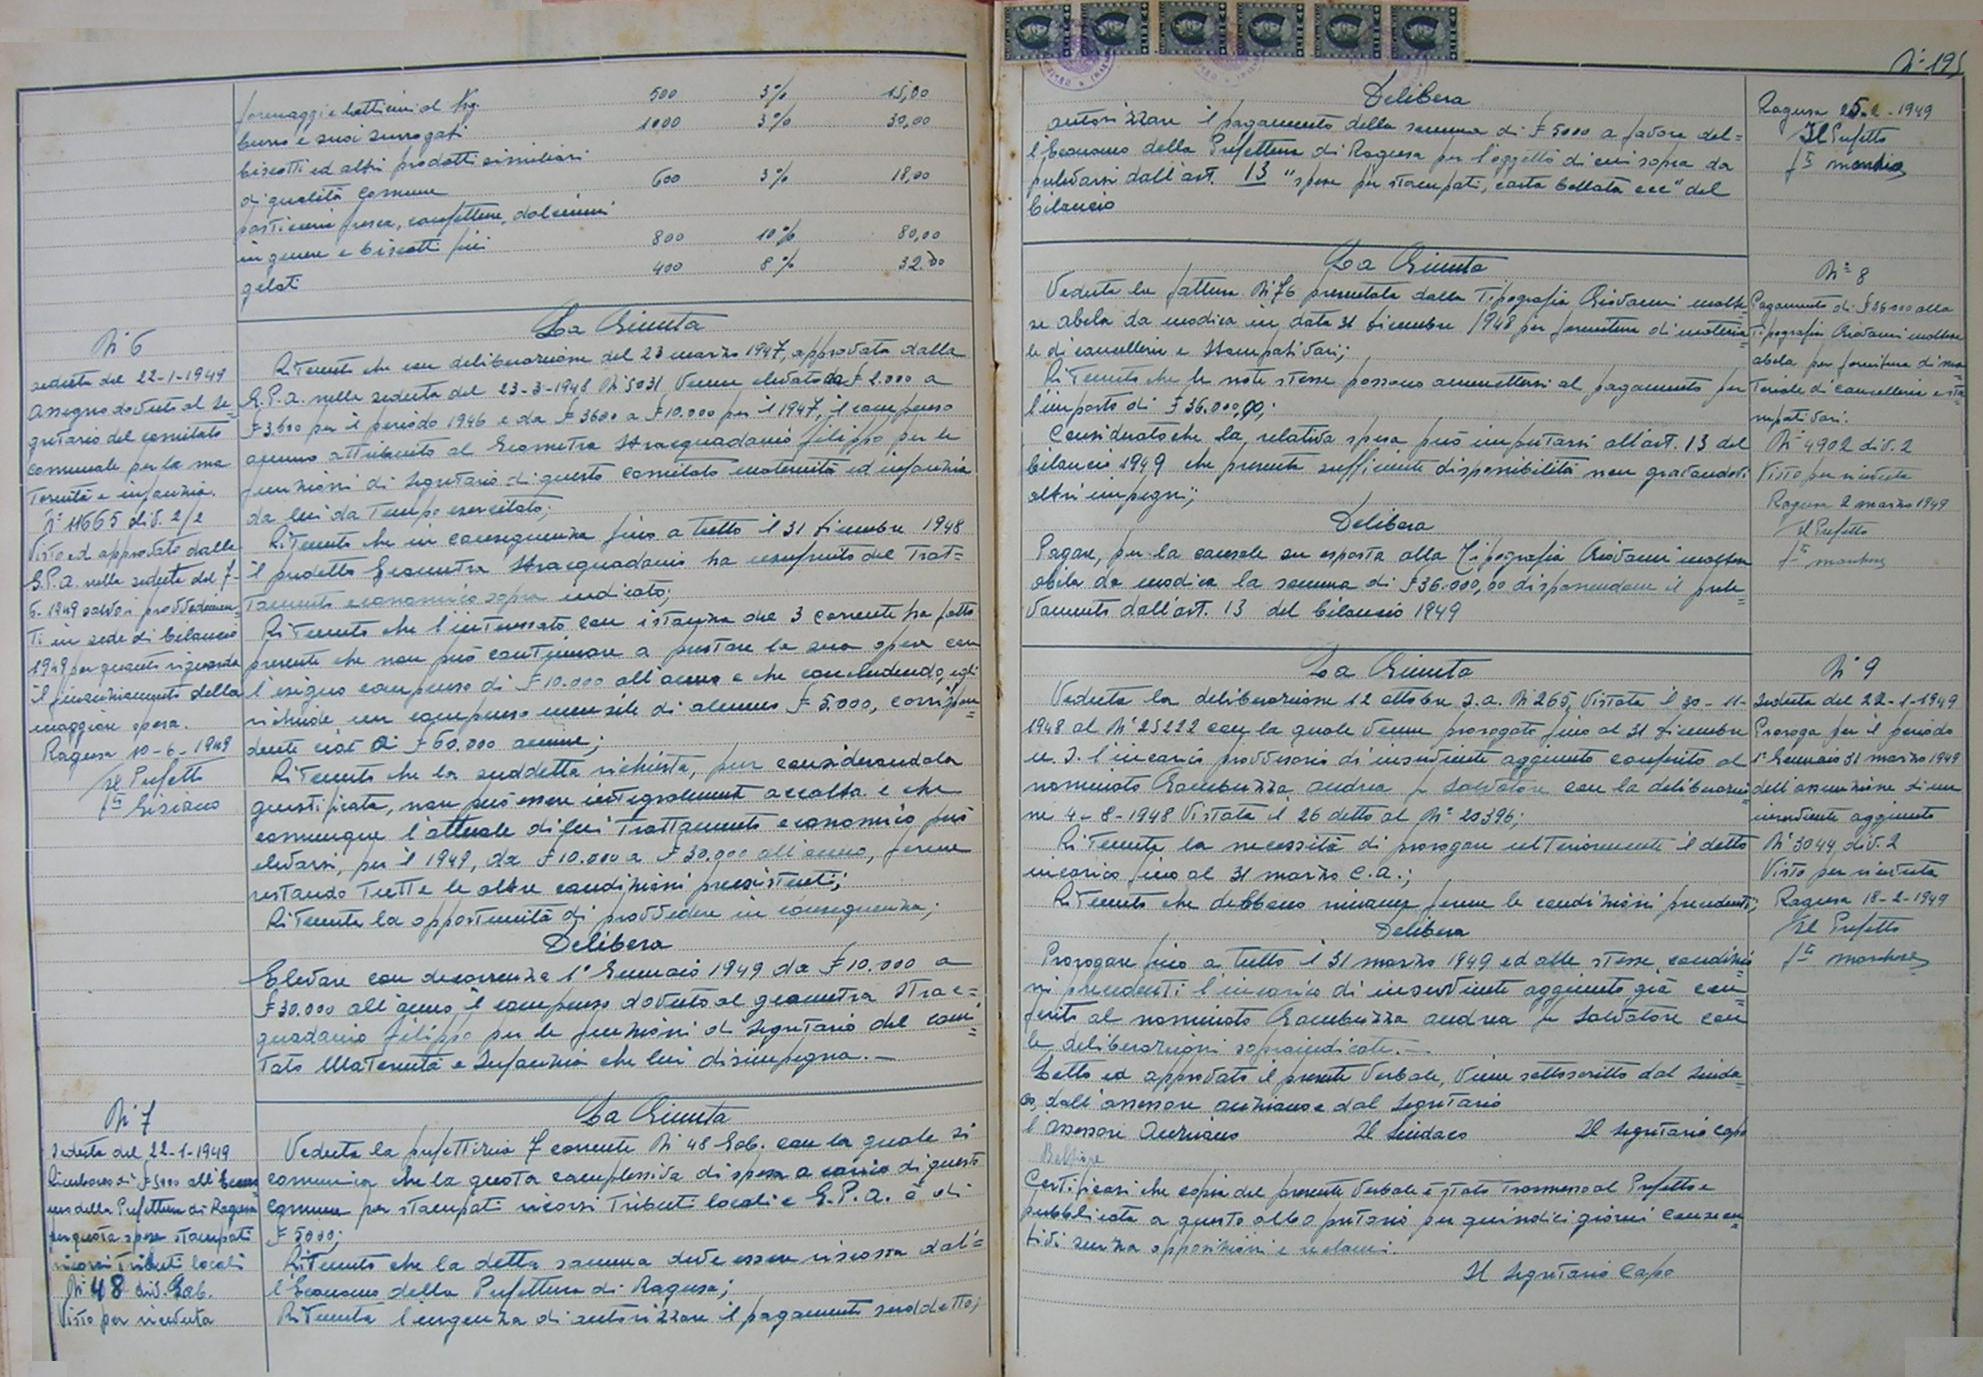 formaggi e latticini al Kg. 500 3% 15,00
burro e suoi surrogati 1000 3% 30,00
biscotti ed altri prodotti similiari
di qualità comune 600 3% 18,00
pasticceria fresca, confetture, dolciumi
in genere e biscotti fini 800 10% 80,00
gelati 400 8% 32.00
N° 6
seduta del 22-1-1949
Assegno dovuto al Se=
gretario del comitato
comunale per la ma
ternità e infanzia.
N° 11665 div. 2/2
Visto ed approvato dalla
G.P.A. nella seduta del 7-
6-1949 salvo i provvedimen
ti in sede di bilancio
1949 per quanto riguarda
il finanziamento della
maggiore spesa.
Ragusa 10-6-1949
Il Prefetto
La Giunta
Ritenuto che con deliberazione del 23 marzo 1947, approvata dalla
G.P.A. nella seduta del 23-3-1948 N° 5031 venne elevato da £ 2.000 a
£ 3.600 per il periodo 1946 e da £ 3600 a £ 10.000 per il 1947, il compenso
annuo attribuito al Geometra Stracquadanio Filippo per le
funzioni di Segretario di questo comitato maternità ed infanzia
da lui da tempo esercitato;
Ritenuto che in conseguenza fino a tutto il 31 dicembre 1948
il predetto Geometra Stracquadanio ha usufruito del trat=
tamento economico sopra indicato;
Ritenuto che l'interessato con istanza del 3 corrente ha fatto
presente che non può continuare a prestare la sua opera con
l'esiguo compenso di £ 10.000 all'anno e che concludendo, egli
richiede un compenso mensile di almeno £ 5.000, corrispon=
dente cioè a £ 60.000 annue;
Ritenuto che la suddetta richiesta, pur considerandola
giustificata, non può essere integralmente accolta e che
comunque l'attuale di lui trattamento economico può
elevarsi, per il 1949, da £ 10.000 a £ 30.000 all'anno, ferme
restando tutte le altre condizioni preesistenti;
Ritenuta la opportunità di provvedere in conseguenza;
Delibera
Elevare con decorrenza 1° Gennaio 1949 da £ 10.000 a
£ 30.000 all'anno il compenso dovuto al geometra Strac=
quadanio Filippo per le funzioni di Segretario del comi=
tato Maternità e Infanzia che lui disimpegna. —
N° 7
seduta del 22-1-1949
Rimborso di £ 5000 all'Econo
mo della Prefettura di Ragusa
per quota spese stampati
ricorsi tributi locali
N° 48 div. Gab.
Visto per ricevuta
La Giunta
Veduta la prefettizia 7 corrente N° 48 Gab. con la quale si
comunica che la quota complessiva di spesa a carico di questo
Comune per stampati ricorsi tributi locali e G.P.A. è di
£ 5000;
Ritenuto che la detta somma deve essere riscossa dal=
l'Economo della Prefettura di Ragusa;
Ritenuta l'urgenza di autorizzare il pagamento suddetto;
N° 195
Delibera
autorizzare il pagamento della somma di £ 5000 a favore del=
l'Economo della Prefettura di Ragusa per l'oggetto di cui sopra da
prelevarsi dall'art. 13 "spese per stampati, carta bollata ecc" del
bilancio
Ragusa 25-2-1949
Il Prefetto
La Giunta
Veduta la fattura N° 76 presentata dalla Tipografia Giovanni Molte
se Abela da Modica in data 31 dicembre 1948 per fornitura di materia
le di cancelleria e stampati vari;
Ritenuto che le note stesse possono ammettersi al pagamento per
l'importo di £ 36.000,00;
Considerato che la relativa spesa può imputarsi all'art. 13 del
bilancio 1949 che presenta sufficiente disponibilità non gravandovi
altri impegni;
Delibera
Pagare, per la causale su esposta alla Tipografia Giovanni Moltese
Abela da Modica la somma di £ 36.000,00 disponendone il prele=
vamento dall'art. 13 del bilancio 1949
N° 8
Pagamento di £ 36000 alla
Tipografia Giovanni Moltese
Abela per fornitura di ma
teriale di cancelleria e sta=
mpati vari.
N° 4902 div. 2
Visto per ricevuta
Ragusa 2 marzo 1949
Il Prefetto
La Giunta
Veduta la deliberazione 12 ottobre s.a. N° 265, vistata il 30-11-
1948 al N° 25222 con la quale venne prorogato fino al 31 dicembre
u.s. l'incarico provvisorio di inserviente aggiunto conferito al
nominato Gambuzza Andrea fu Salvatore con la deliberazio
ne 4-8-1948 vistata il 26 detto al N° 20396;
Ritenuta la necessità di prorogare ulteriormente il detto
incarico fino al 31 marzo c.a.;
Ritenuto che debbano rimanere ferme le condizioni precedenti;
Delibera
Prorogare fino a tutto il 31 marzo 1949 ed alle stesse condizio
ni precedenti l'incarico di inserviente aggiunto già con=
ferito al nominato Gambuzza Andrea fu Salvatore con
le deliberazioni sopraindicate. —
Letto ed approvato il presente verbale, viene sottoscritto dal Sinda=
co, dall'assessore anziano e dal Segretario
l'Assessore Anziano Il Sindaco Il Segretario Capo
Certificasi che copia del presente verbale è stato trasmesso al Prefetto e
pubblicata a questo albo pretorio per quindici giorni consecu
tivi senza opposizioni e reclami.
Il Segretario Capo
N° 9
seduta del 22-1-1949
Proroga per il periodo
1° Gennaio 31 marzo 1949
dell'assunzione di un
inserviente aggiunto
N° 3044 div. 2
Visto per ricevuta
Ragusa 18-2-1949
Il Prefetto